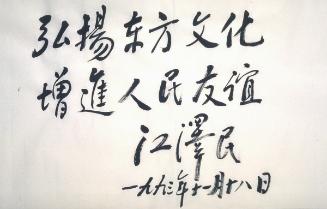 弘揚东方文化
增進人民友谊
江澤民
一九九三年十一月十八日